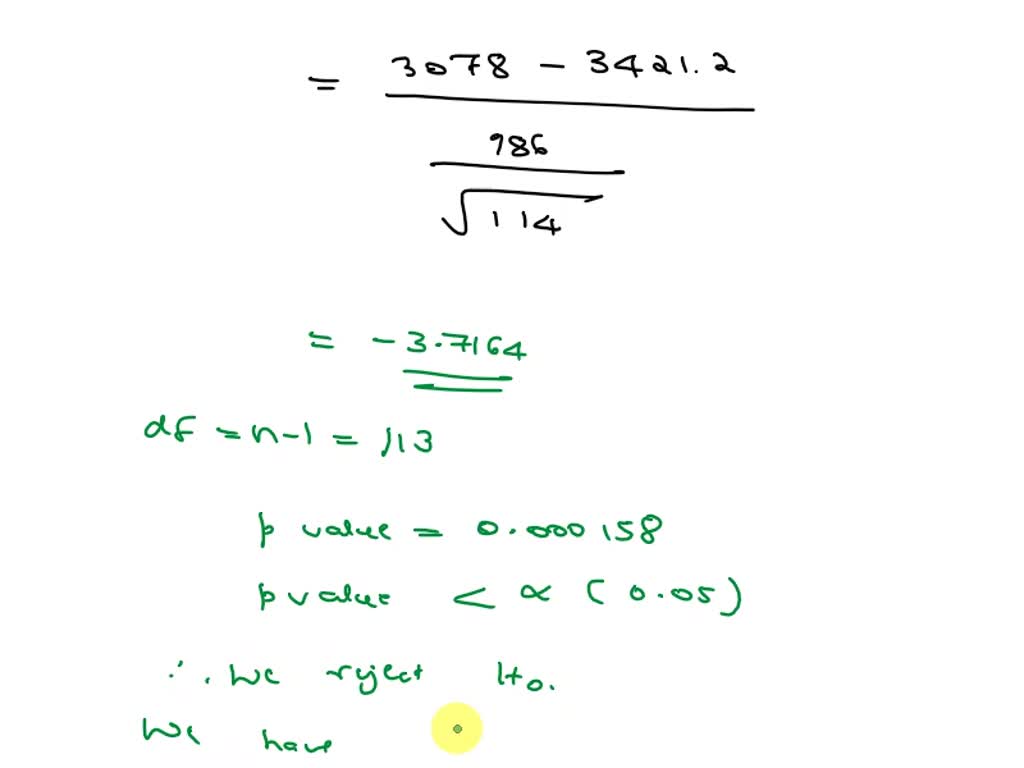 = 3078 - 3421.2
986
√114
= -3.7164
df = n-1 = 113
p value = 0.000158
p value < α (0.05)
∴ We reject H0.
We have